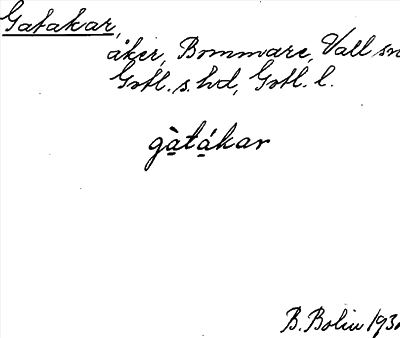 Gatakar,
åker, Bommare, Vall sn
Gotl. s. hd, Gotl. l.
gàtákar
B. Bolin 193